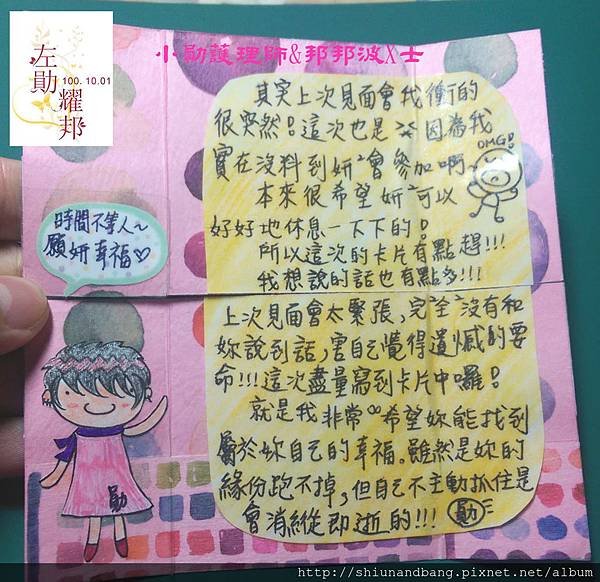 小勛護理師&邦邦波X士
左勛
100.10.01
耀邦
其實上次見面會我衝的
很突然!這次也是 因為我
實在沒料到妍²會參加啊
OMG!
本來很希望妍²可以
好好地休息一下下的!
所以這次的卡片有點趕!!!
我想說的話也有點多!!!
時間不等人~
願妍幸福♡
上次見面會太緊張,完²全²沒有和
妳說到話,害自己覺得遺憾的要
命!!!這次盡量寫到卡片中囉!
就是我非常∞希望妳能找到
屬於妳自己的幸福。雖然是妳的
緣份跑不掉,但自己不主動抓住是
會消縱即逝的!!! 勛
勛
http://shiunandbang.pixnet.net/album